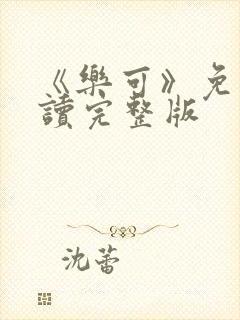 《樂可》免
讀完整版
沈蕾